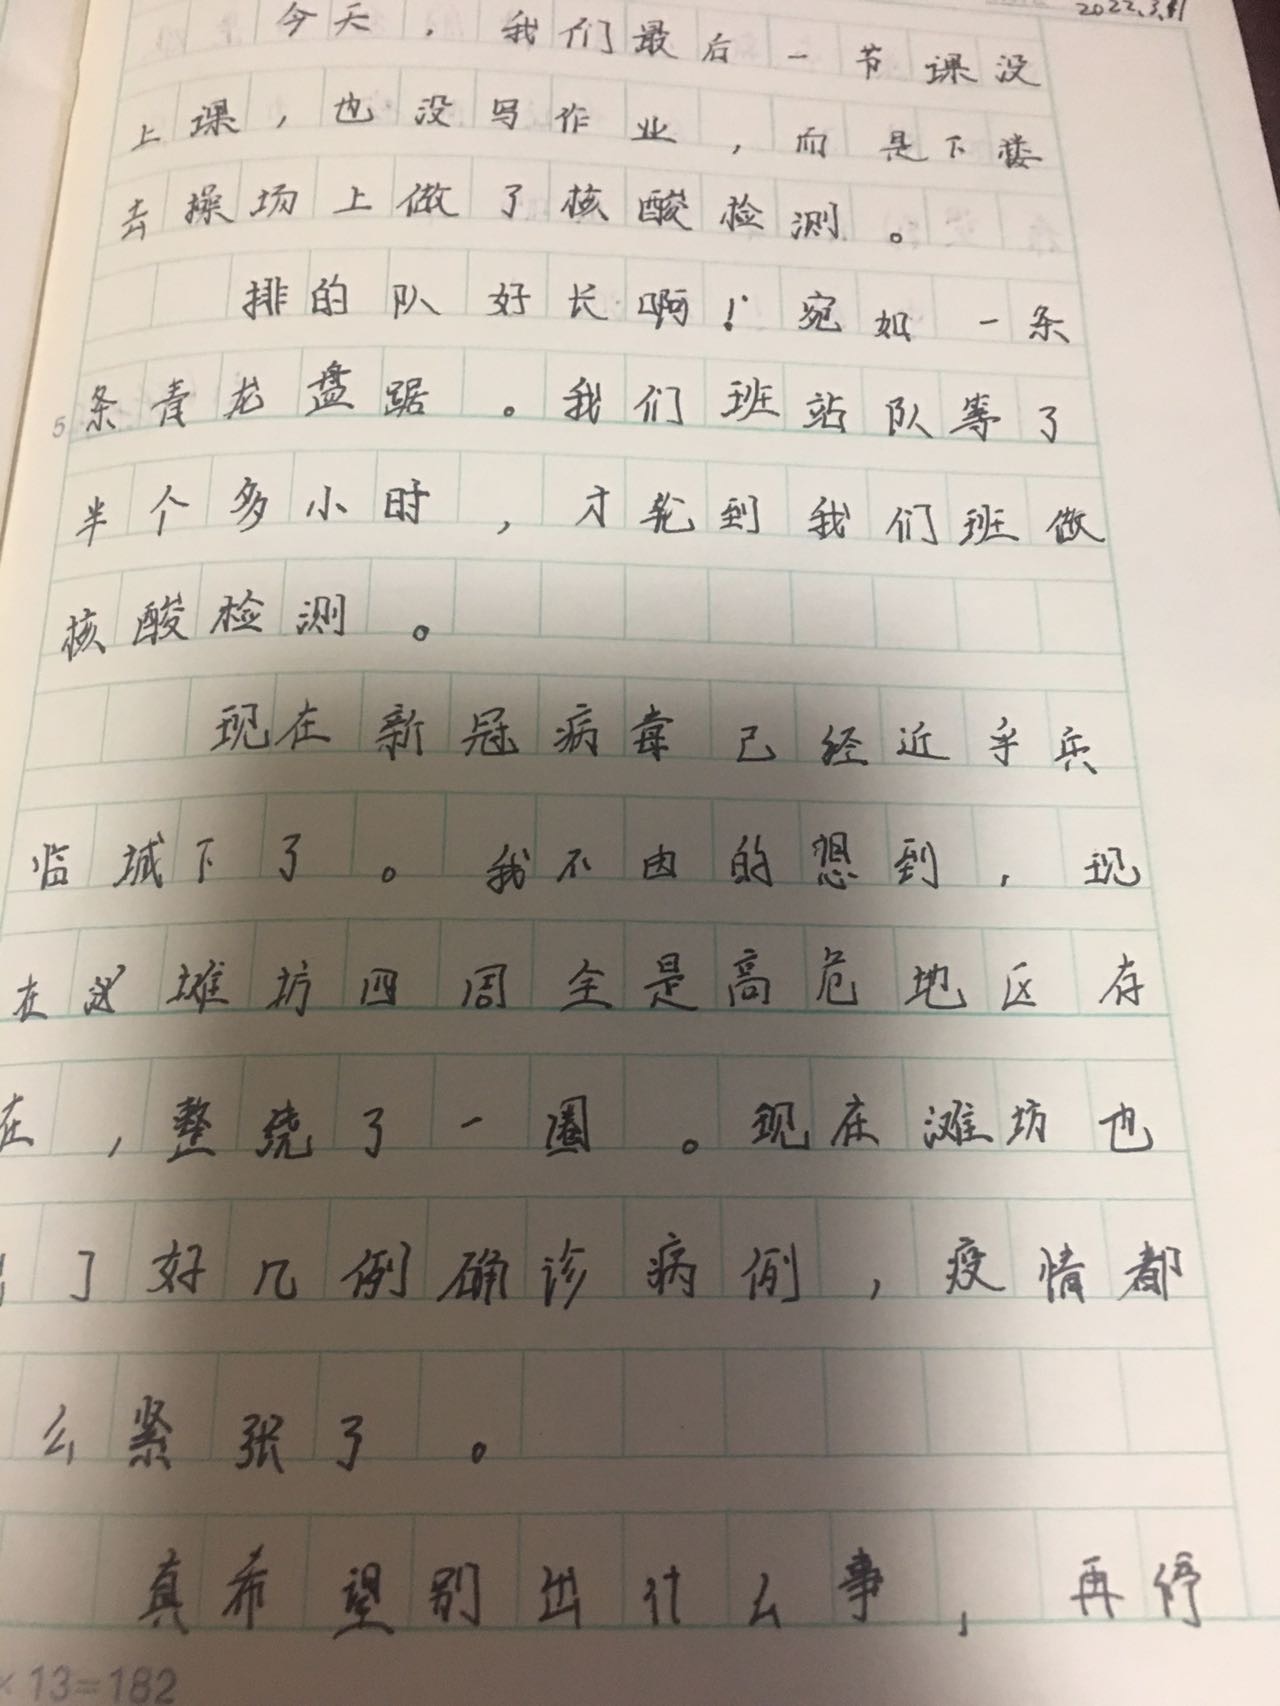 2022.3.11
今天，我们最后一节课没
上课，也没写作业，而是下楼
去操场上做了核酸检测。
排的队好长啊！宛如一条
5 条青龙盘踞。我们班站队等了
半个多小时，才轮到我们班做
核酸检测。
现在新冠病毒已经近乎兵
临城下了。我不由的想到，现
在这滩坊四周全是高危地区存
在，整绕了一圈。现在滩坊也
了好几例确诊病例，疫情都
么紧张了。
真希望别出什么事，再停
× 13=182